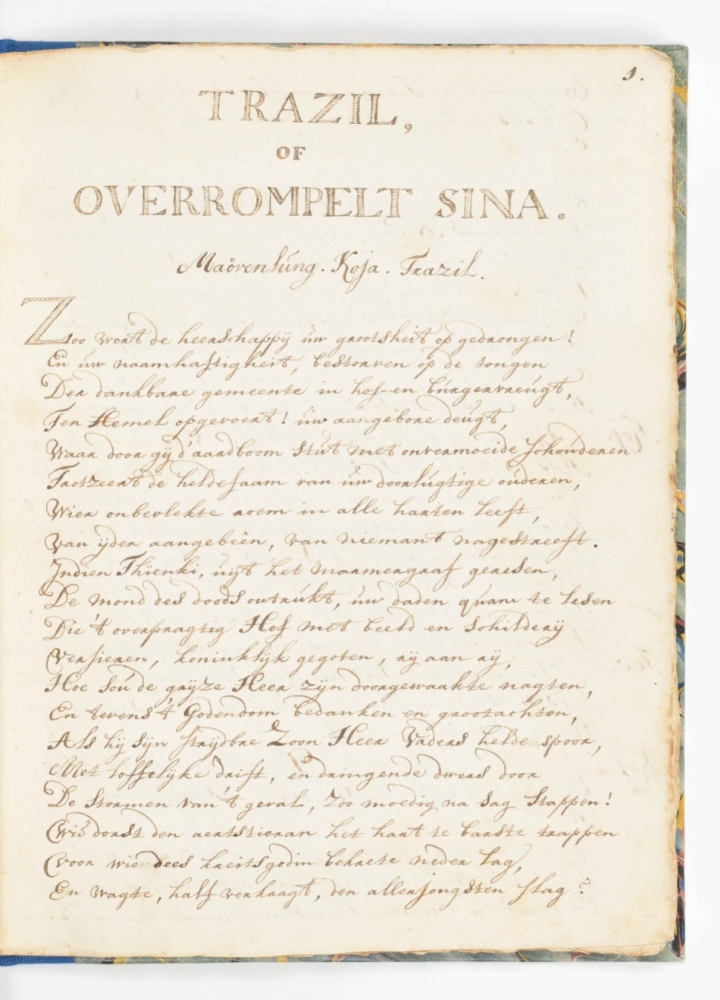 1.
TRAZIL,
OF
OVERROMPELT SINA.
Maövenlúng. Koja. Trazil.
Zoo wort de heerschappij úw grootsheit op gedrongen!
En úw naamhaftigheit, bestorven op de tongen
Der dankbare gemeente in hof- en búrgervreúgt,
Ten Hemel opgevoert! úw aangebore deúgt,
Waar door gij d'aardboom stut met onvermoeide schouderen
Trotzeert de heldefaam van úw doorlúgtige oúderen,
Wier onbevlekte roem in alle harten leeft,
Van ijder aangebeên, van niemant nagestreeft.
Indien Thienki, uijt het marmergraf geresen,
De mond des doods ontrukt, úw daden qwam te lesen
Die 't overpragtig Hof met beeld en schilderij
Versieren, koninklijk gegoten, rij aan rij,
Hoe soú de grijze Heer zijn doorgewaakte nagten,
En tevens 't Godendom bedanken en grootachten,
Als hij sijn strijdbre Zoon Heer Vaders helde spoor,
Met loffelijke drift, en dringende dwers door
De stormen van 't geval, zoo moedig na sag stappen!
Wie dorst den aertstieran het hart te barste trappen
Voor wie dees kreitsgodin bekrete neder lag,
En wagte, half verkragt, den allerjongsten slag?